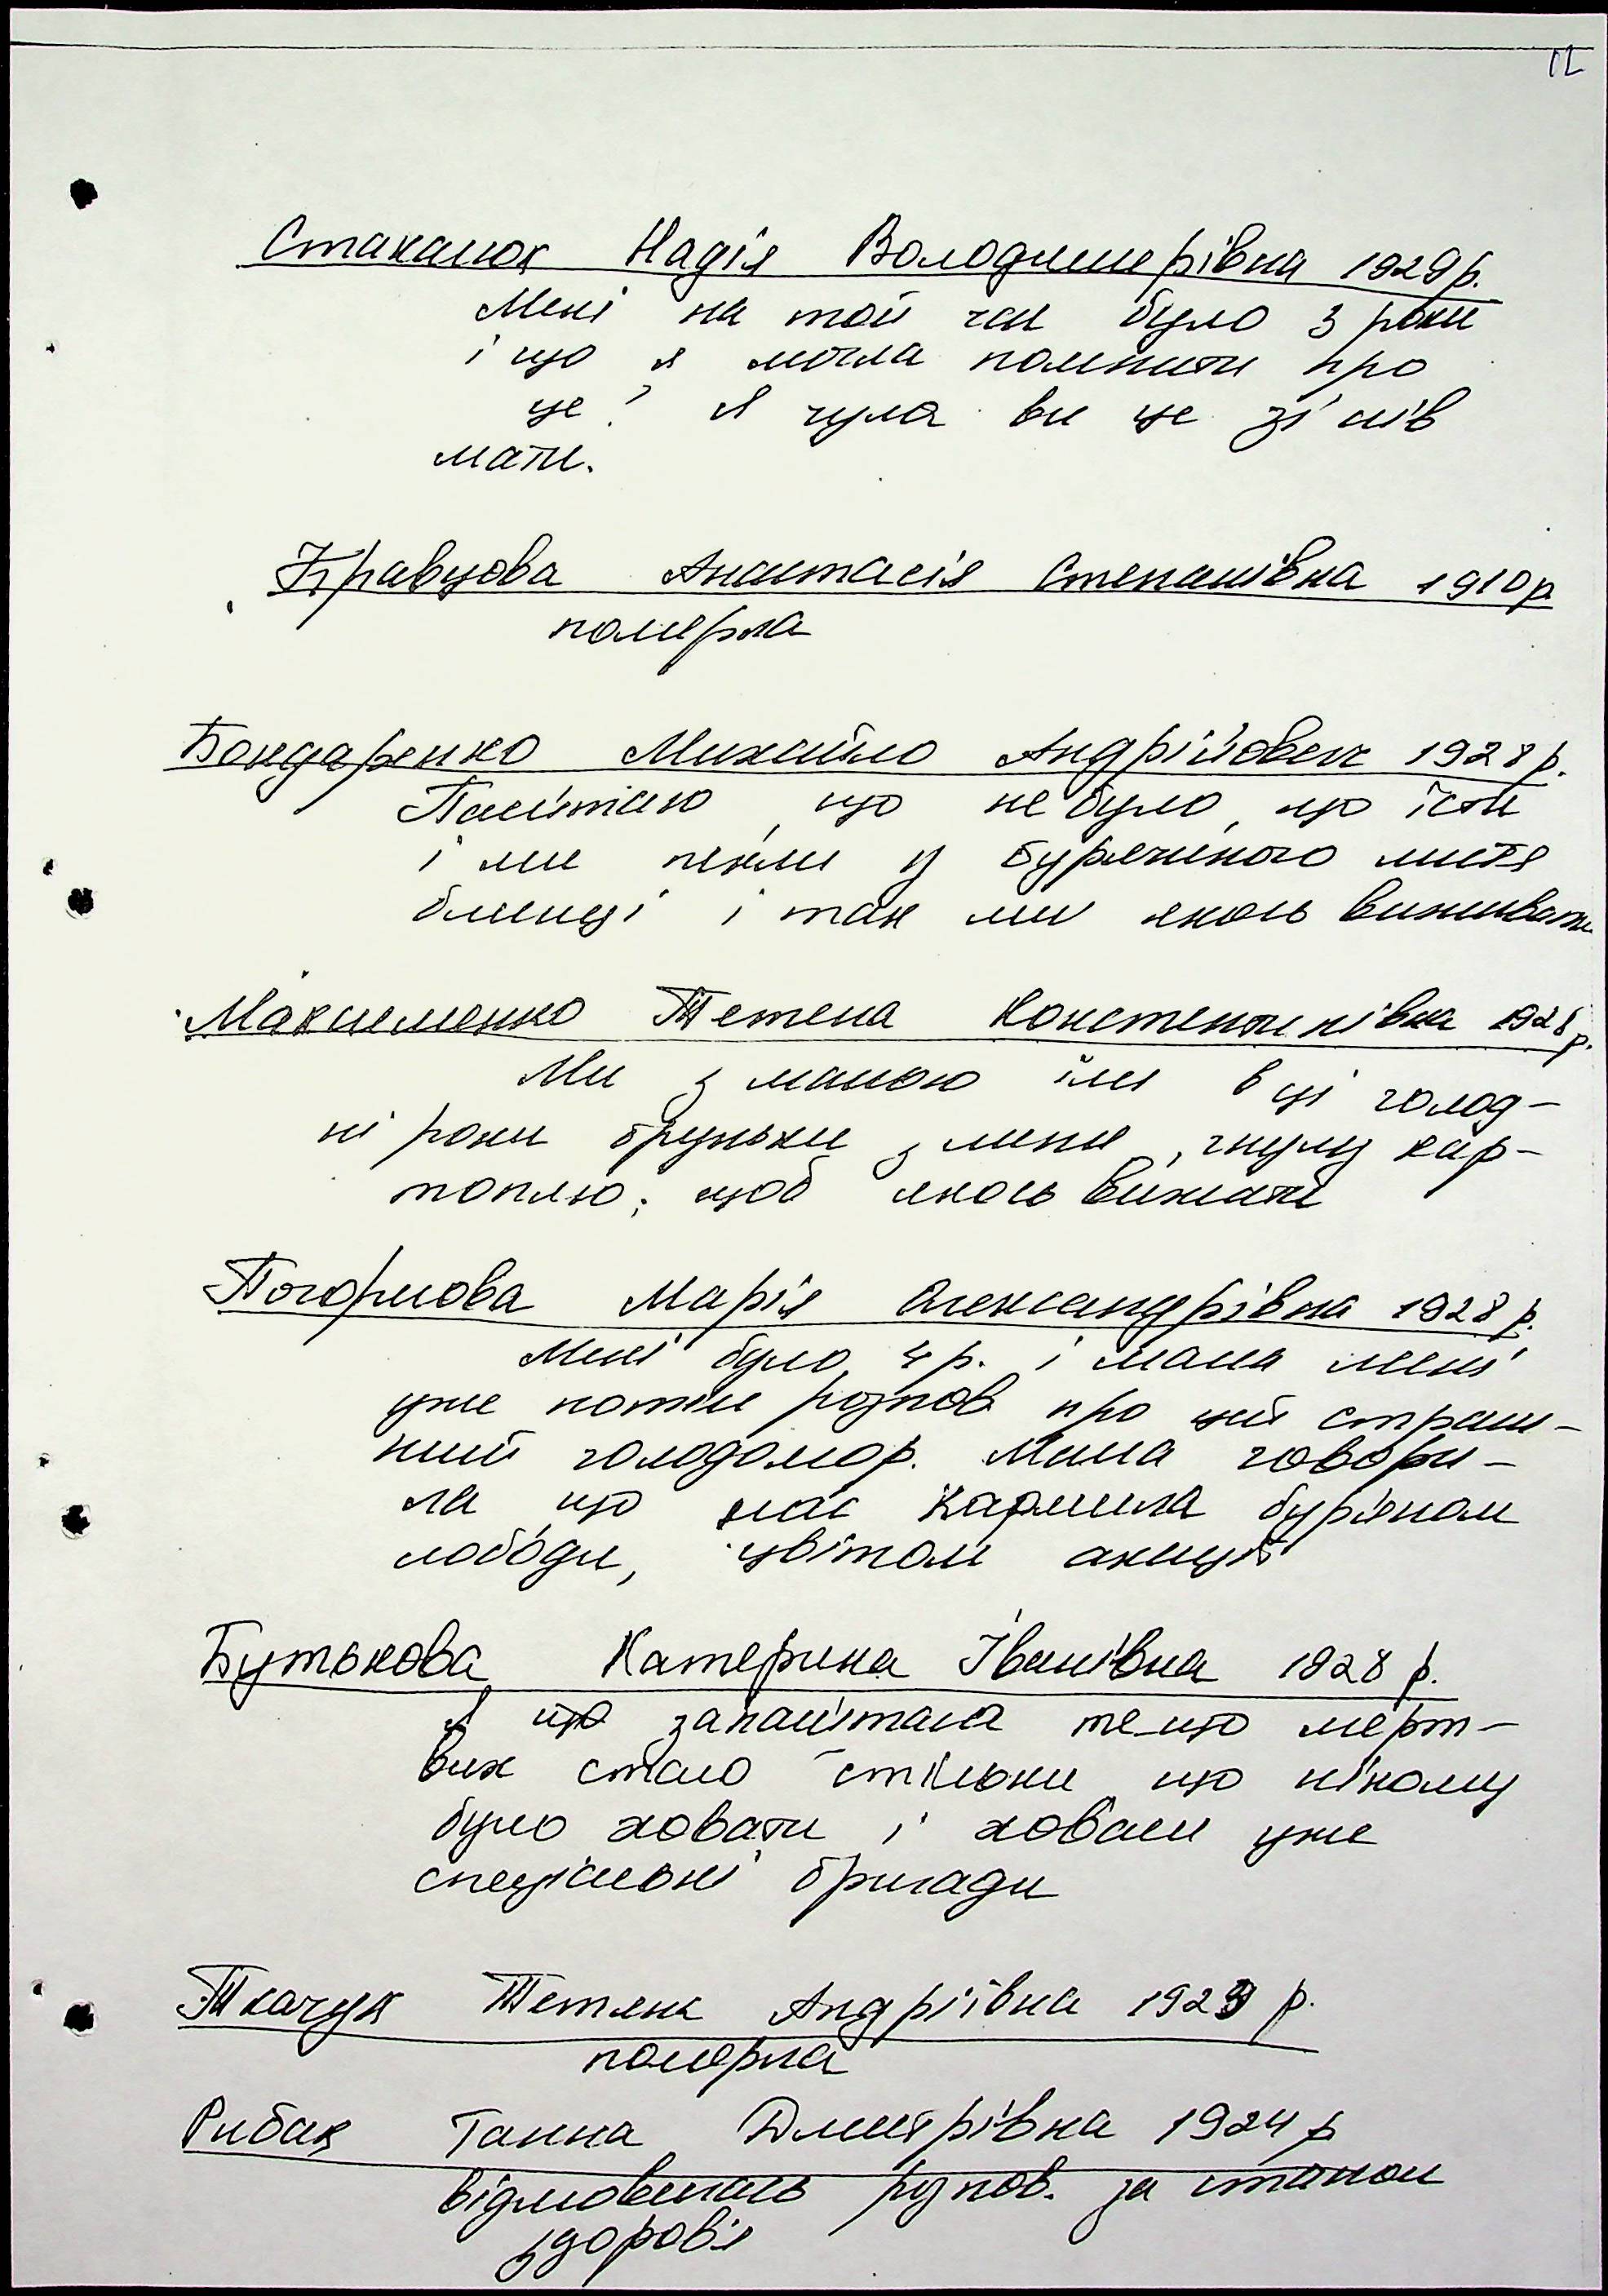 12
Стаканок Надія Володимирівна 1929 р.
Мені на той час було 3 роки
і що я могла помнити про
це? Я чула ви це зі слів
мати.
Кравцова Анастасія Степанівна 1910 р
померла
Бондаренко Михайло Андрійович 1928 р.
Памʼятаю, що не було, що їсти
і ми пекли із бурячиного листя
блинці і так ми якось виживали
Максименко Тетена Константинівна 1928 р.
Ми з мамою їли в ці голод-
ні роки бруньки з липи, гнулу кар-
топлю, щоб якось вижити
Погорлова Марія Олександрівна 1928 р.
Мені було 4 р. і мама мені
уже потім розпов про цей страш-
ний голодомор. Мама говори-
ла що нас кармила буріяном
лободи, цвітом акації
Бутькова Катерина Іванівна 1928 р.
Я що запамʼятала те що мерт-
вих стало стільки що нікому
було ховати і ховали уже
спеціальні бригади
Ткачук Тетяна Андріївна 1929 р.
померла
Рибак Ганна Дмитрівна 1924 р
відмовилась розпов. за станом
здоровʼя